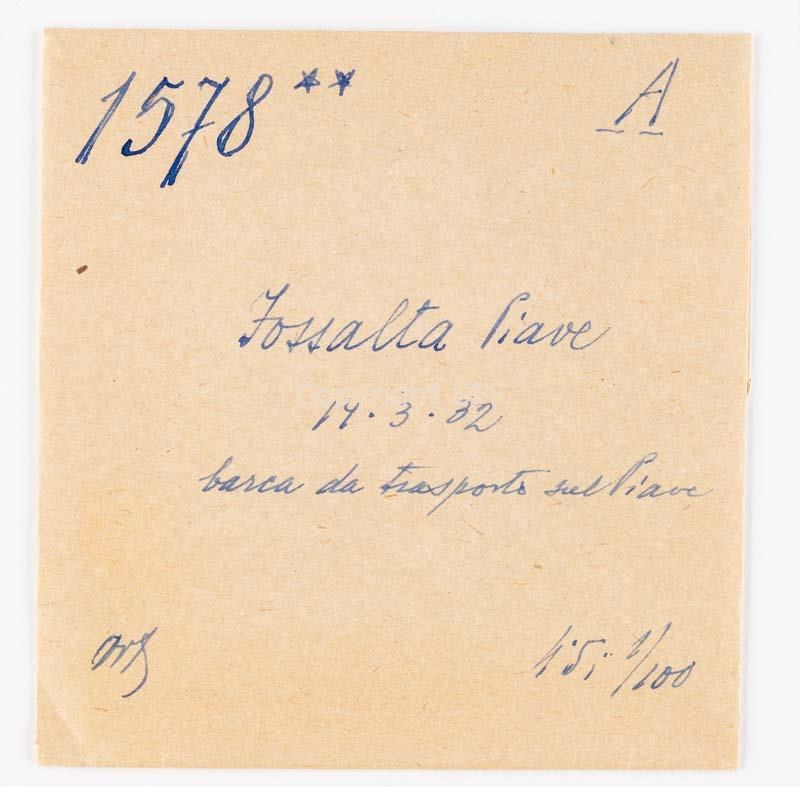 1578 ** A
Fossalta Piave
14.3.32
barca da trasporto sul Piave
4.5; 1/100